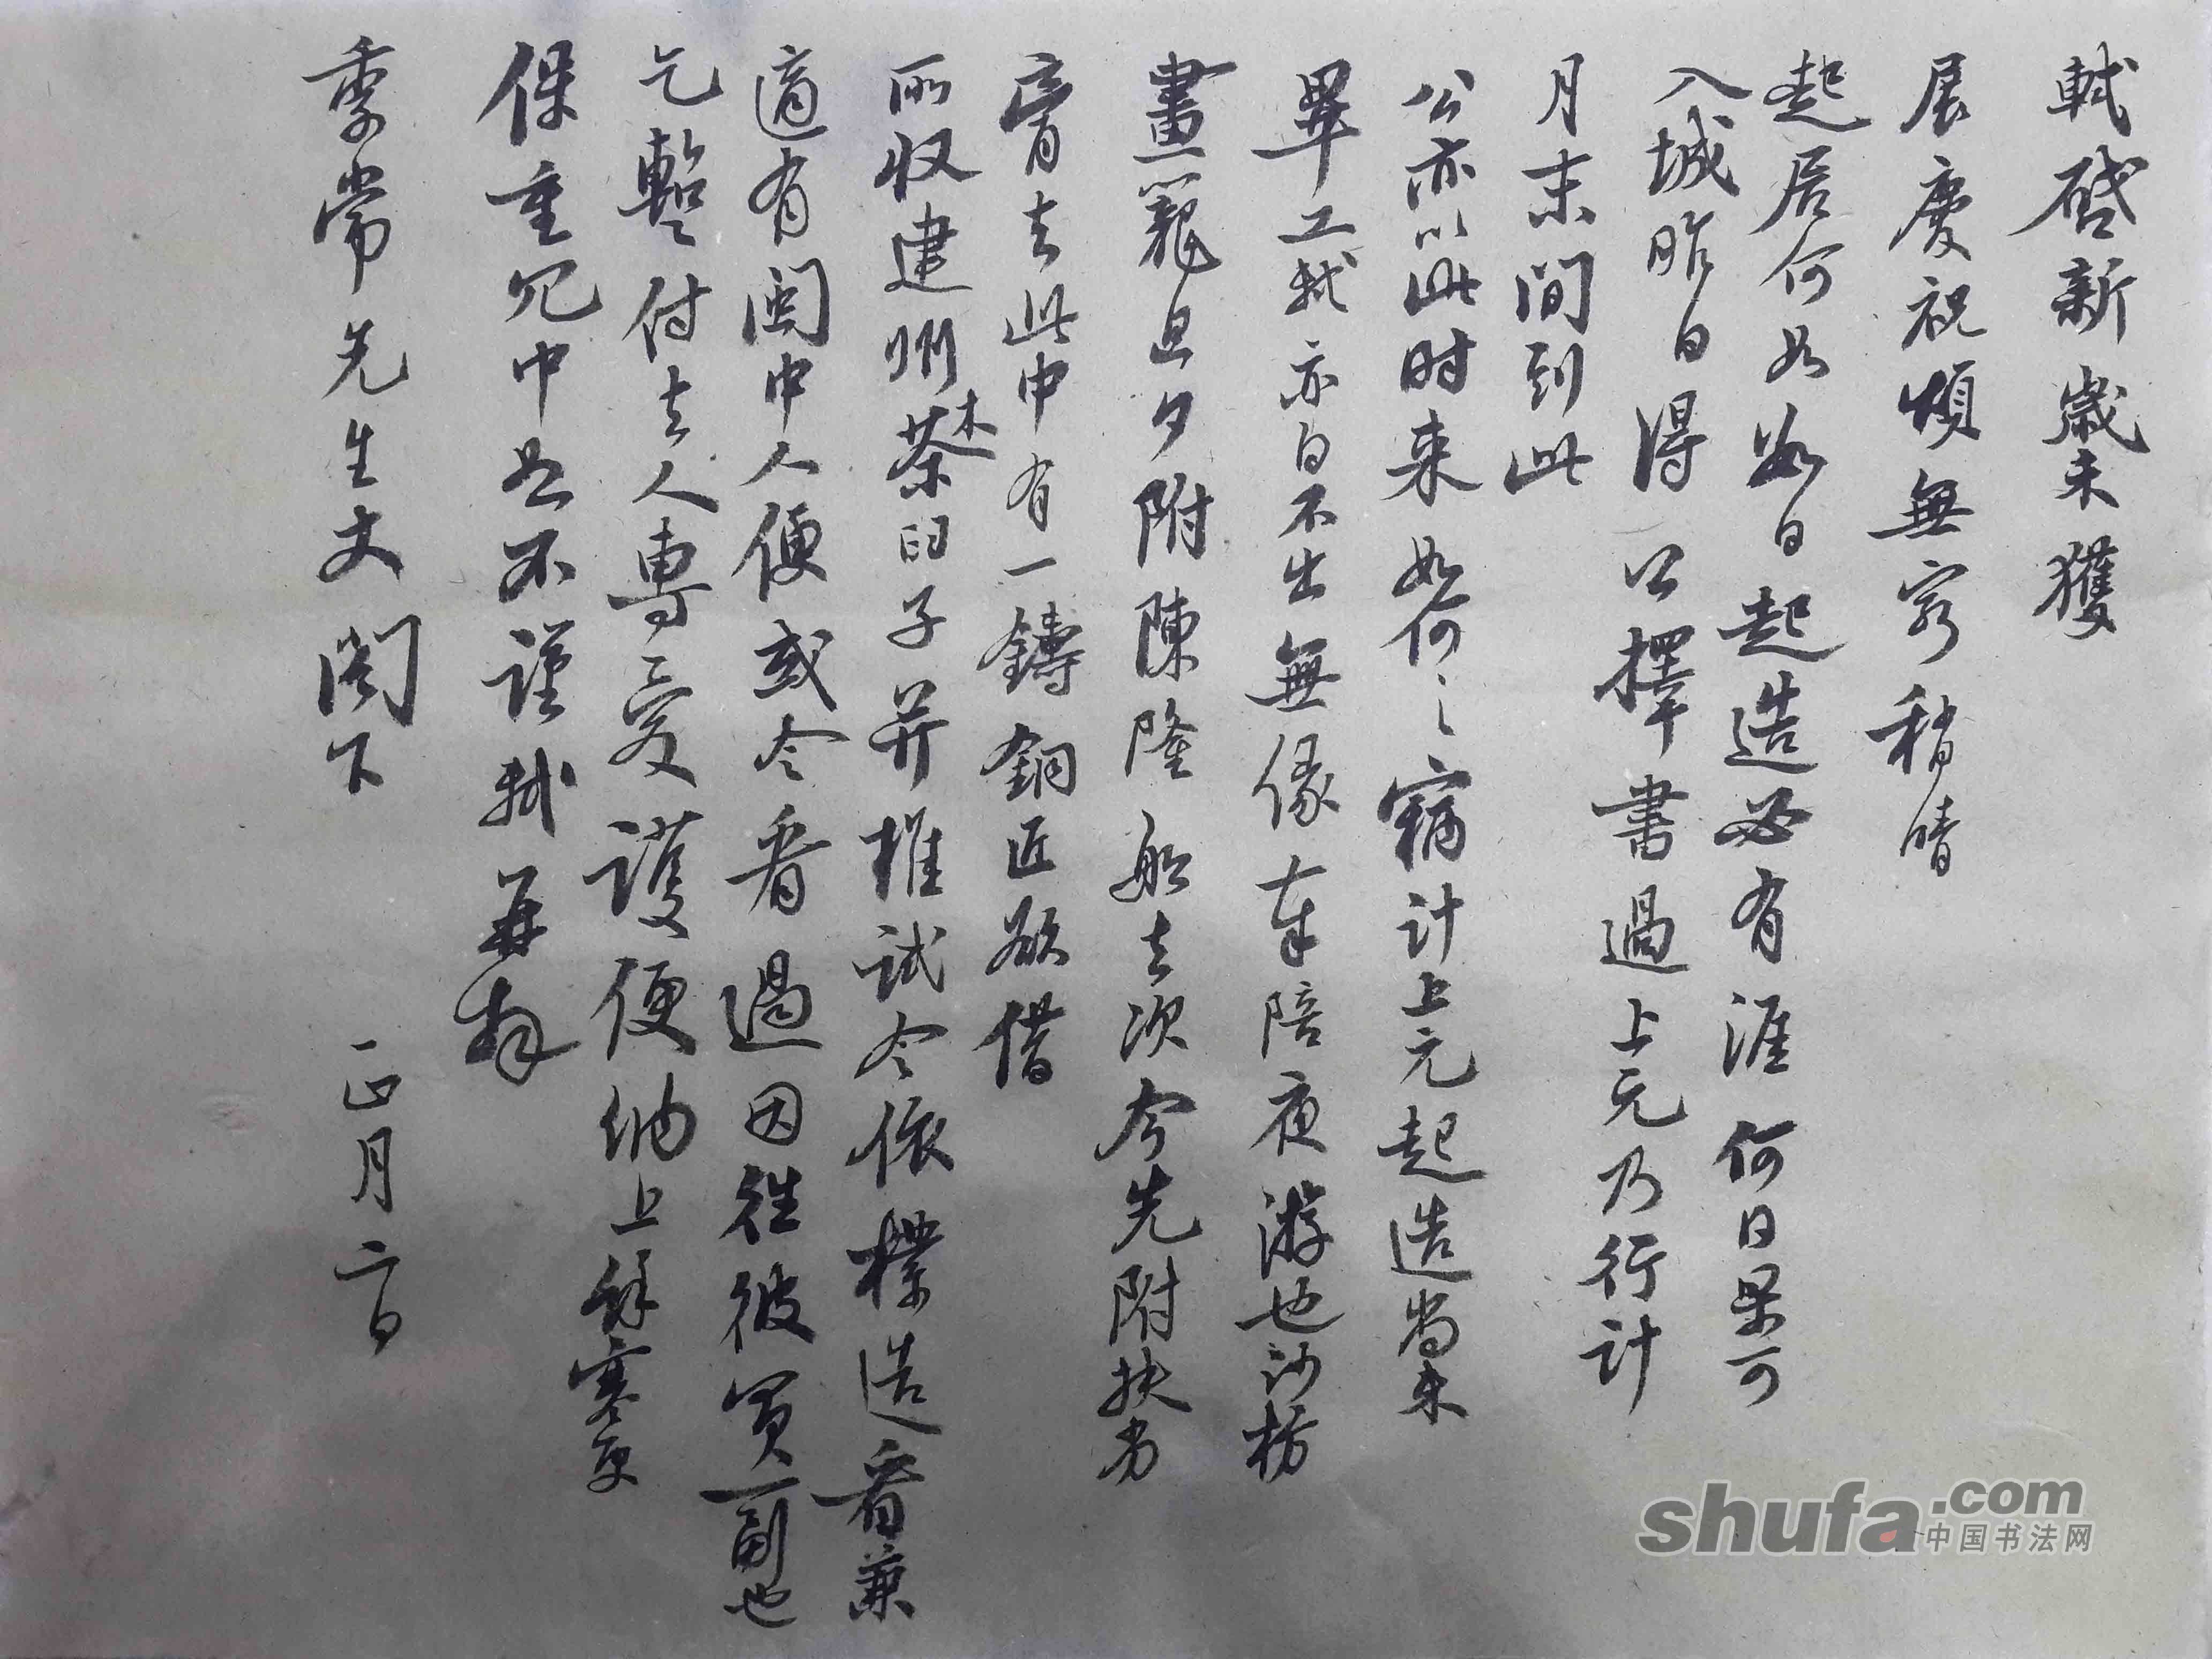 軾啓新歲未獲
展慶祝頌無窮稍晴
起居何如數日起造必有涯何日果可
入城昨日得公擇書過上元乃行計
月末間到此
公亦以此时来如何=竊計上元起造尚未
畢工軾亦自不出無緣奉陪夜游也沙枋
畫籠旦夕附陳隆船去次今先附扶劣
膏去此中有一鑄銅匠欲借
所收建州木茶臼子并椎試令依樣造看兼
適有閩中人便或令看過因往彼買一副也
乞暫付去人專愛護便納上餘寒更
保重冗中恕不謹軾再拜
季常先生丈閣下 正月二日
shufa.com
中国书法网